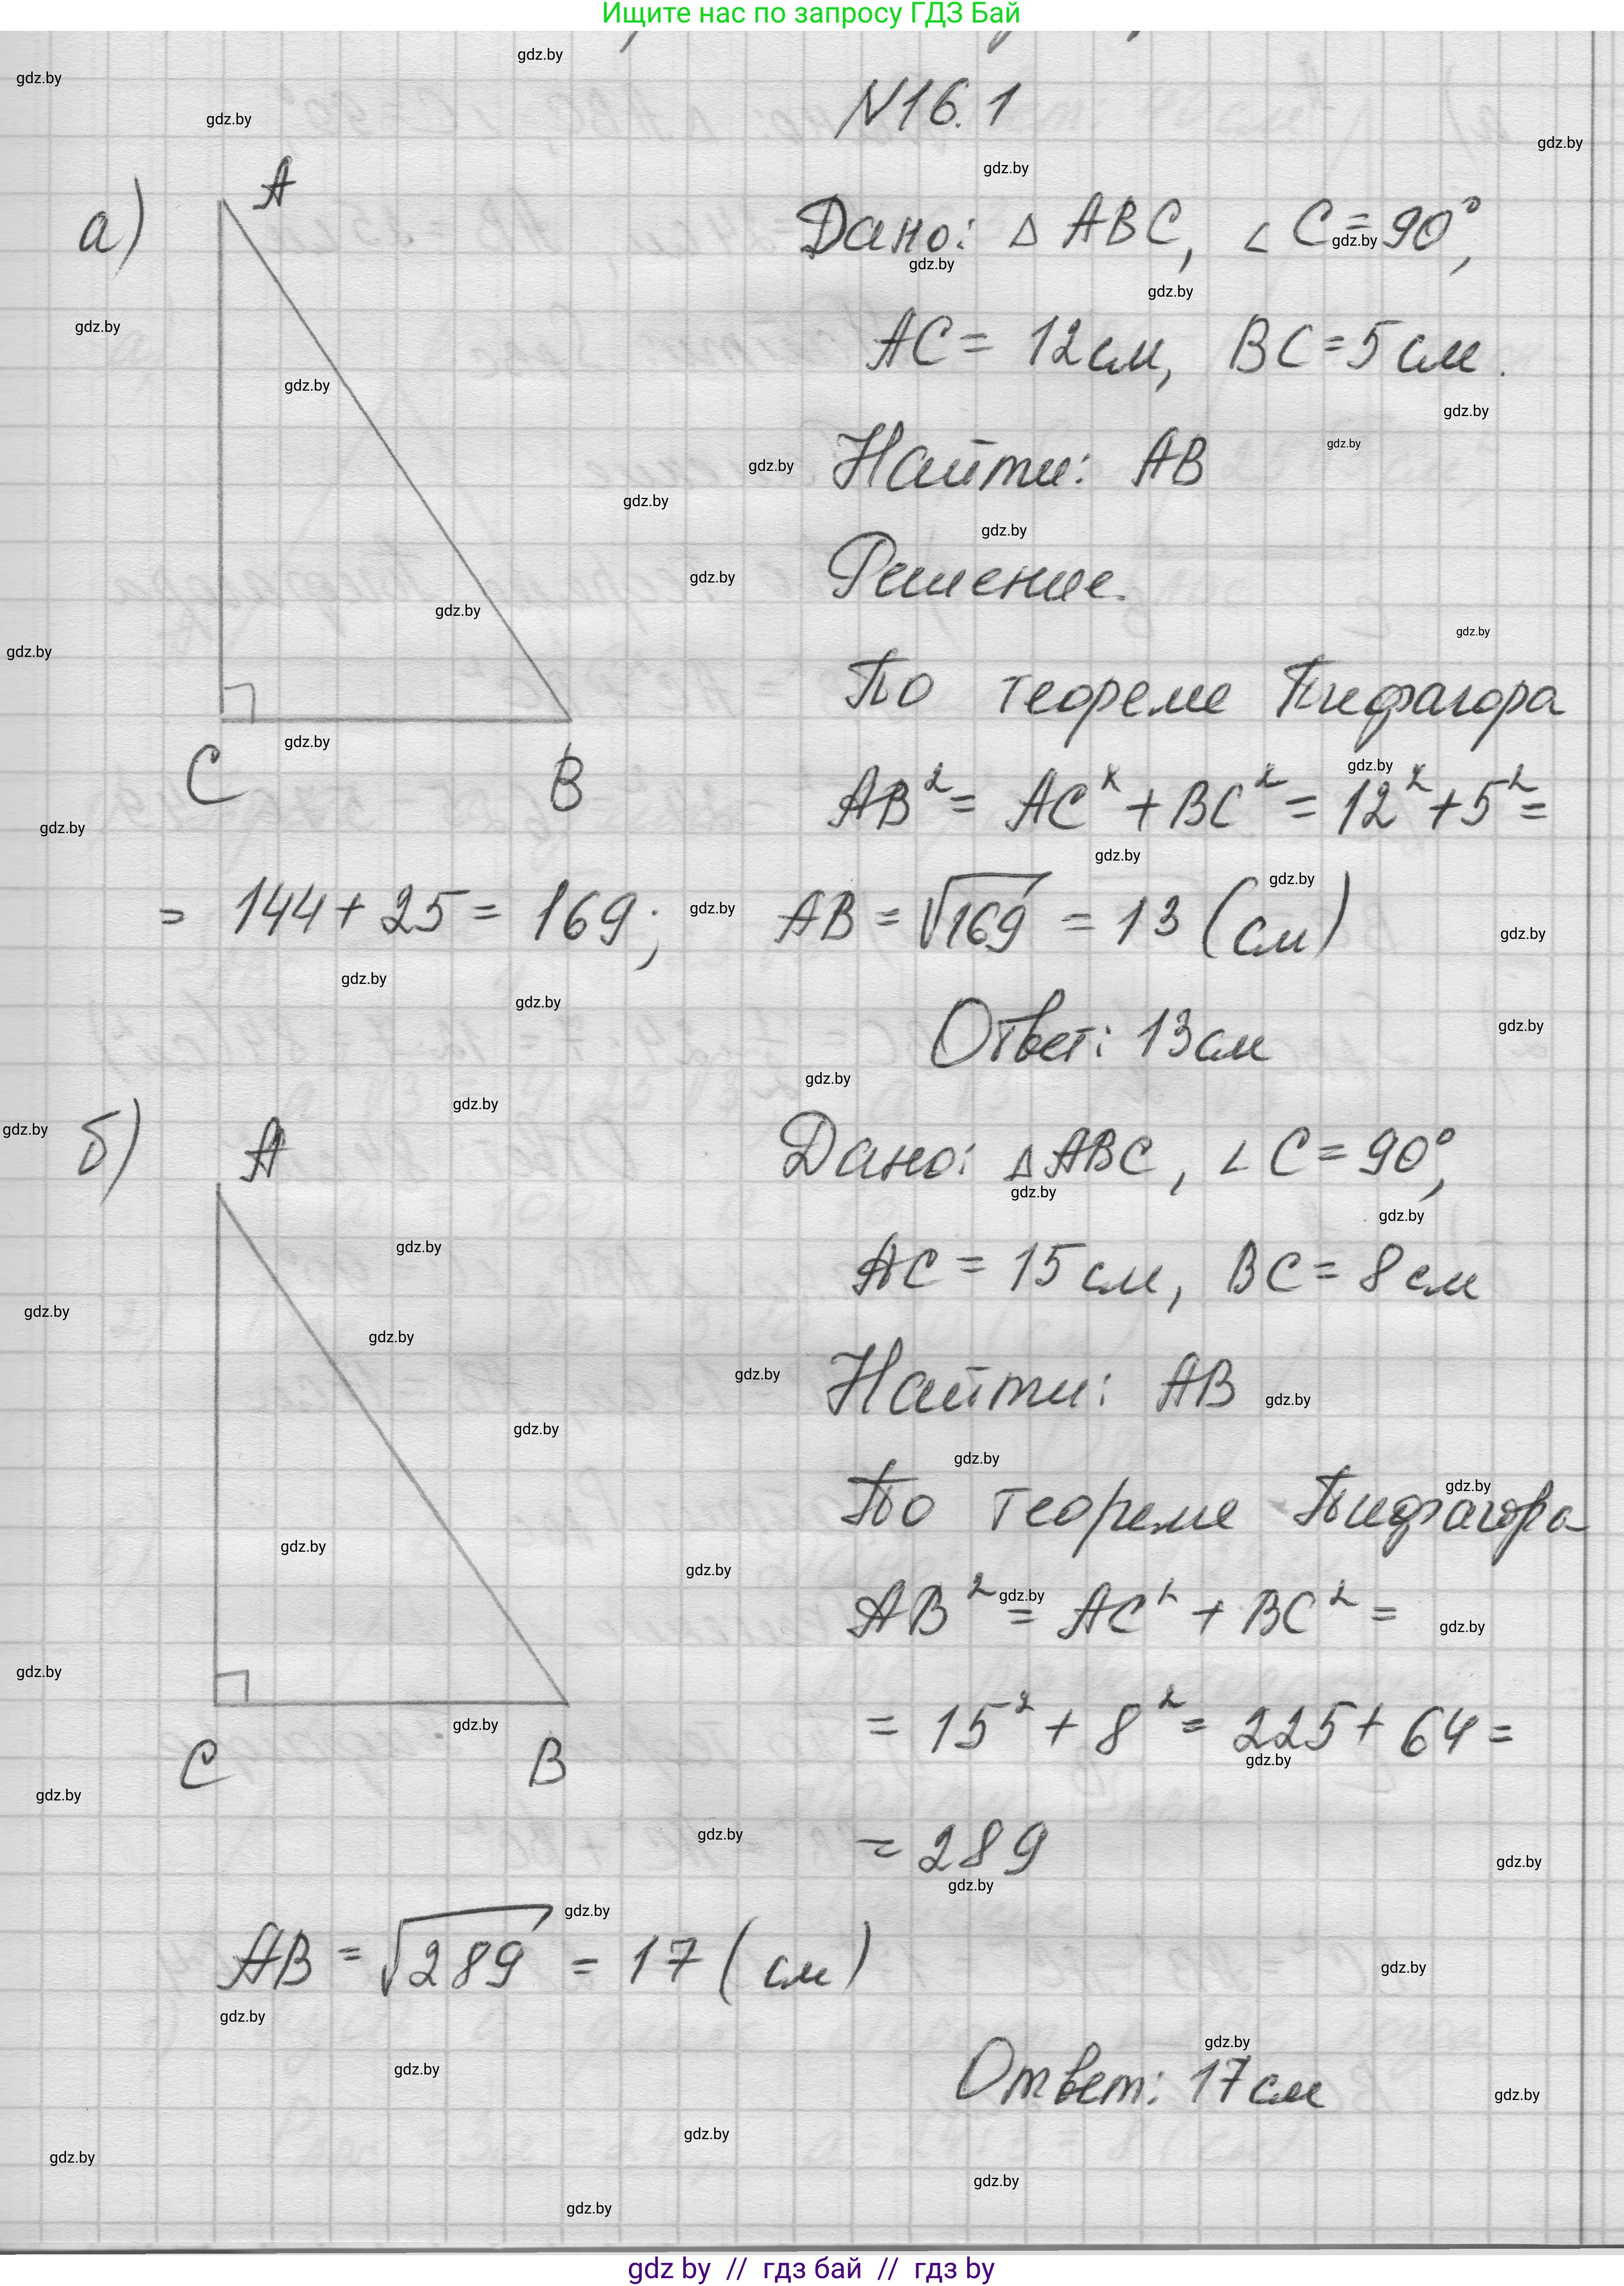 Ищите нас по запросу ГДЗ Бай
N16.1
а)
A
C
B
Дано: △ ABC, ∠ C = 90°,
AC = 12 см, BC = 5 см.
Найти: AB
Решение.
По теореме Пифагора
AB² = AC² + BC² = 12² + 5² =
= 144 + 25 = 169; AB = √169 = 13 (см)
Ответ: 13 см
б)
A
C
B
Дано: △ ABC, ∠ C = 90°,
AC = 15 см, BC = 8 см
Найти: AB
По теореме Пифагора
AB² = AC² + BC² =
= 15² + 8² = 225 + 64 =
= 289
AB = √289 = 17 (см)
Ответ: 17 см
gdz.by
gdz by // гдз бай // гдз by